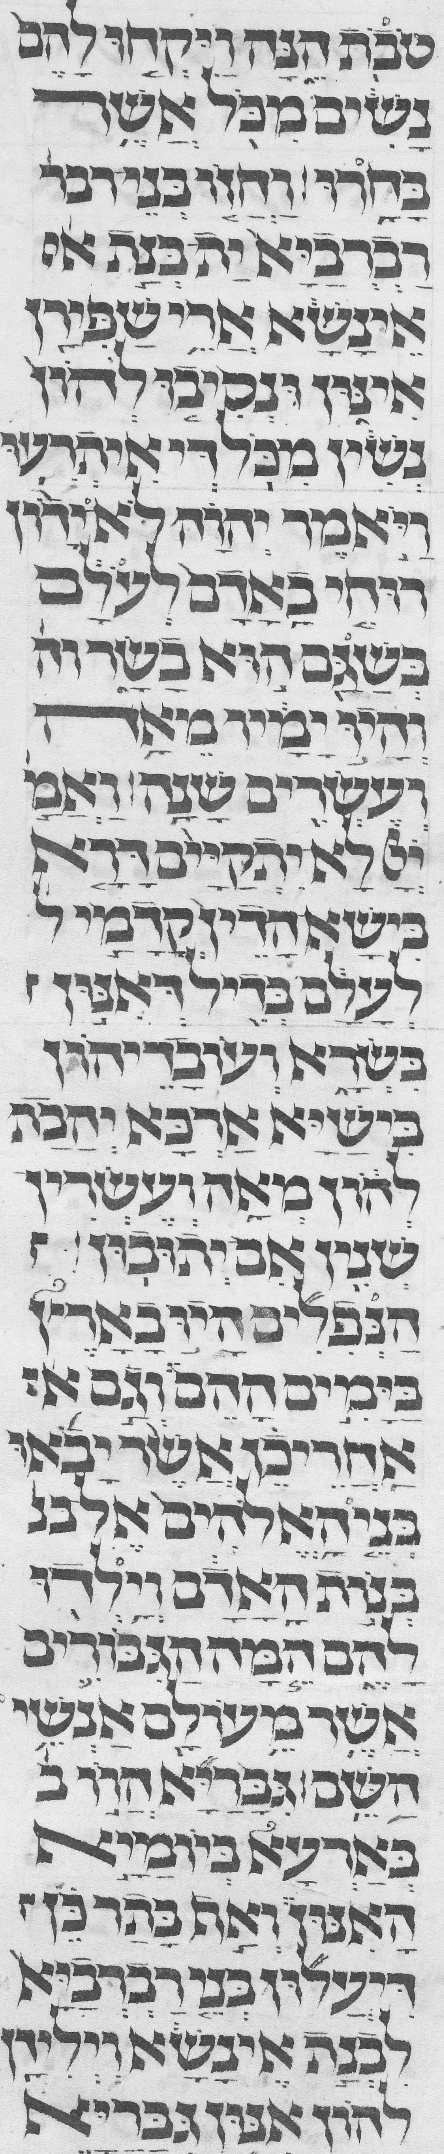 טֹבֹת הֵנָּה וַיִּקְחוּ לָהֶם
נָשִׁים מִכֹּל אֲשֶׁר
בָּחָרוּ׃ וַחֲזוֹ בְּנֵי רבר
רַבְרְבַיָּא יָת בְּנָת אנ
אֱינָשָׁא אֲרֵי שַׁפִּירָן
אִינִּין וּנְסִיבוּ לְהוֹן
נְשִׁין מִכָּל דִּי אִיתְרְעִיוּ
וַיֹּאמֶר יְהוָה לֹא יָדוֹן
רוּחִי בָאָדָם לְעֹלָם
בְּשַׁגָּם הוּא בָשָׂר וה
וְהָיוּ יָמָיו מֵאָה
וְעֶשְׂרִים שָׁנָה׃ וַאֲמַ
יי לָא יִתְקַיַּים דָּרָא
בִּישָׁא הָדֵין קֳדָמַי ל
לְעָלַם בְּדִיל דְּאִנּוּן
בִּשְׂרָא וְעוֹבָדֵיהוֹן
בִּישַׁיָּא אַרְכָּא יְהַבִת
לְהוֹן מְאָה וְעֶשְׂרִין
שְׁנִין אִם יְתוּבוּן׃
הַנְּפִלִים הָיוּ בָאָרֶץ
בַּיָּמִים הָהֵם וְגַם א
אַחֲרֵי כֵן אֲשֶׁר יָבֹאוּ
בְּנֵי הָאֱלֹהִים אֶל בנ
בְּנוֹת הָאָדָם וְיָלְדוּ
לָהֶם הֵמָּה הַגִּבּוֹרִים
אֲשֶׁר מֵעוֹלָם אַנְשֵׁי
הַשֵּׁם׃ גִּבָּרַיָּא הֲווֹ ב
בְּאַרְעָא בְּיוֹמַיָּא
הָאִנּוּן וְאַף בָּתַר כֵּן
דְּיֵעֲלוּן בְּנֵי רַבְרְבַיָּא
לִבְנָת אֱינָשָׁא וִילִידָן
לְהוֹן אִנּוּן גִּבָּרַיָּא